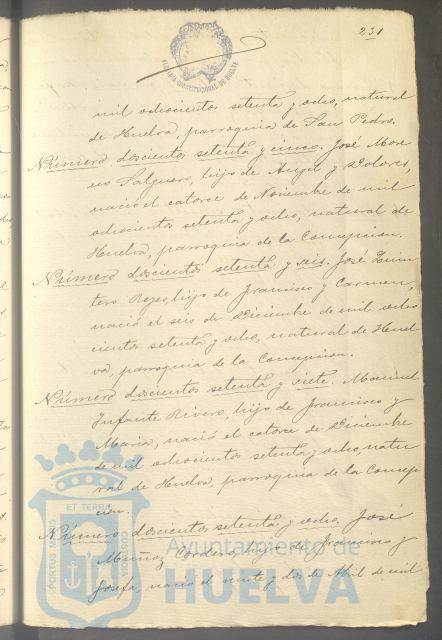 231
ALCALDIA CONSTITUCIONAL DE HUELVA
mil ochocientos setenta y ocho, natural
de Huelva, parroquia de San Pedro.
Número doscientos setenta y cinco. José More
no Salguero, hijo de Angel y Dolores,
nació el catorce de Noviembre de mil
ochocientos setenta y ocho, natural de
Huelva, parroquia de la Concepcion.
Número doscientos setenta y seis. José Quin
tero Reyes, hijo de Francisco y Carmen,
nació el seis de Diciembre de mil ocho
cientos setenta y ocho, natural de Huel
va, parroquia de la Concepcion.
Número doscientos setenta y siete. Manuel
Infante Rivero, hijo de Francisco y
Maria, nació el catorce de Diciembre
de mil ochocientos setenta y ocho, natu
ral de Huelva, parroquia de la Concep
cion.
Número doscientos setenta y ocho. José
Muñoz Cordero, hijo de Francisco y
Josefa, nació el veinte y dos de Abril de mil
PORTUS MARIS ET TERRAE CUSTODIA
Ayuntamiento de
HUELVA